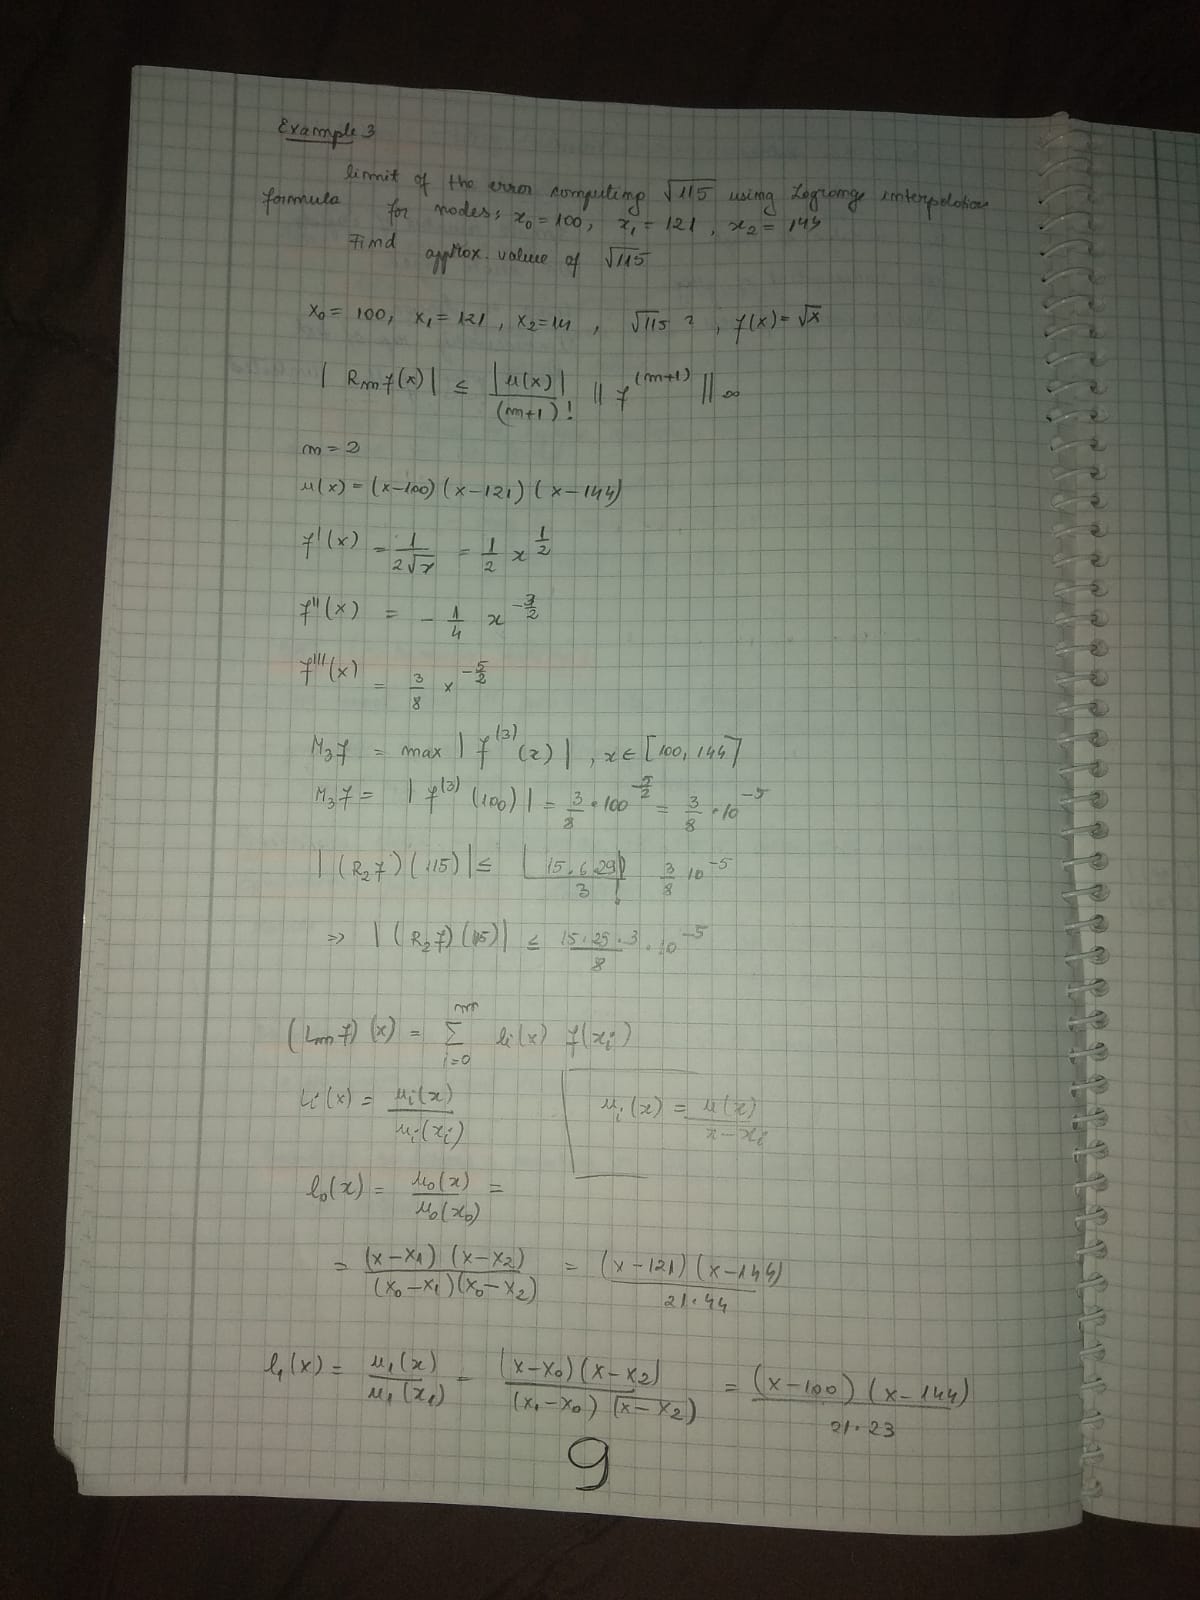 Example 3
limit of the error computing √115 using Lagrange interpolation
formula for nodes: x₀ = 100, x₁ = 121, x₂ = 144
Find approx. value of √115
x₀ = 100, x₁ = 121, x₂ = 14, √115 ?, f(x) = √x
|Rₘf(x)| ≤ |u(x)|/(m+1)! ||f^(m+1)||∞
m = 2
u(x) = (x-100)(x-121)(x-144)
f'(x) = 1/(2√x) = 1/2 x^(1/2)
f''(x) = -1/4 x^(-3/2)
f'''(x) = 3/8 x^(-5/2)
M₃f = max |f^(3)(x)|, x ∈ [100, 144]
M₃f = |f^(3)(100)| = 3/8 · 100^(-5/2) = 3/8 · 10^(-5)
|(R₂f)(115)| ≤ |15·6·29|/3! 3/8 10^(-5)
⇒ |(R₂f)(115)| ≤ (15·29·3)/8 · 10^(-5)
(Lₘf)(x) = Σ_{i=0}^{m} li(x) f(xᵢ)
li(x) = uᵢ(x)/uᵢ(xᵢ) uᵢ(x) = u(x)/(x-xᵢ)
l₀(x) = u₀(x)/u₀(x₀) =
= (x-x₁)(x-x₂)/(x₀-x₁)(x₀-x₂) = (x-121)(x-144)/21·44
l₁(x) = u₁(x)/u₁(x₁) = (x-x₀)(x-x₂)/(x₁-x₀)(x-x₂) = (x-100)(x-144)/21·23
9